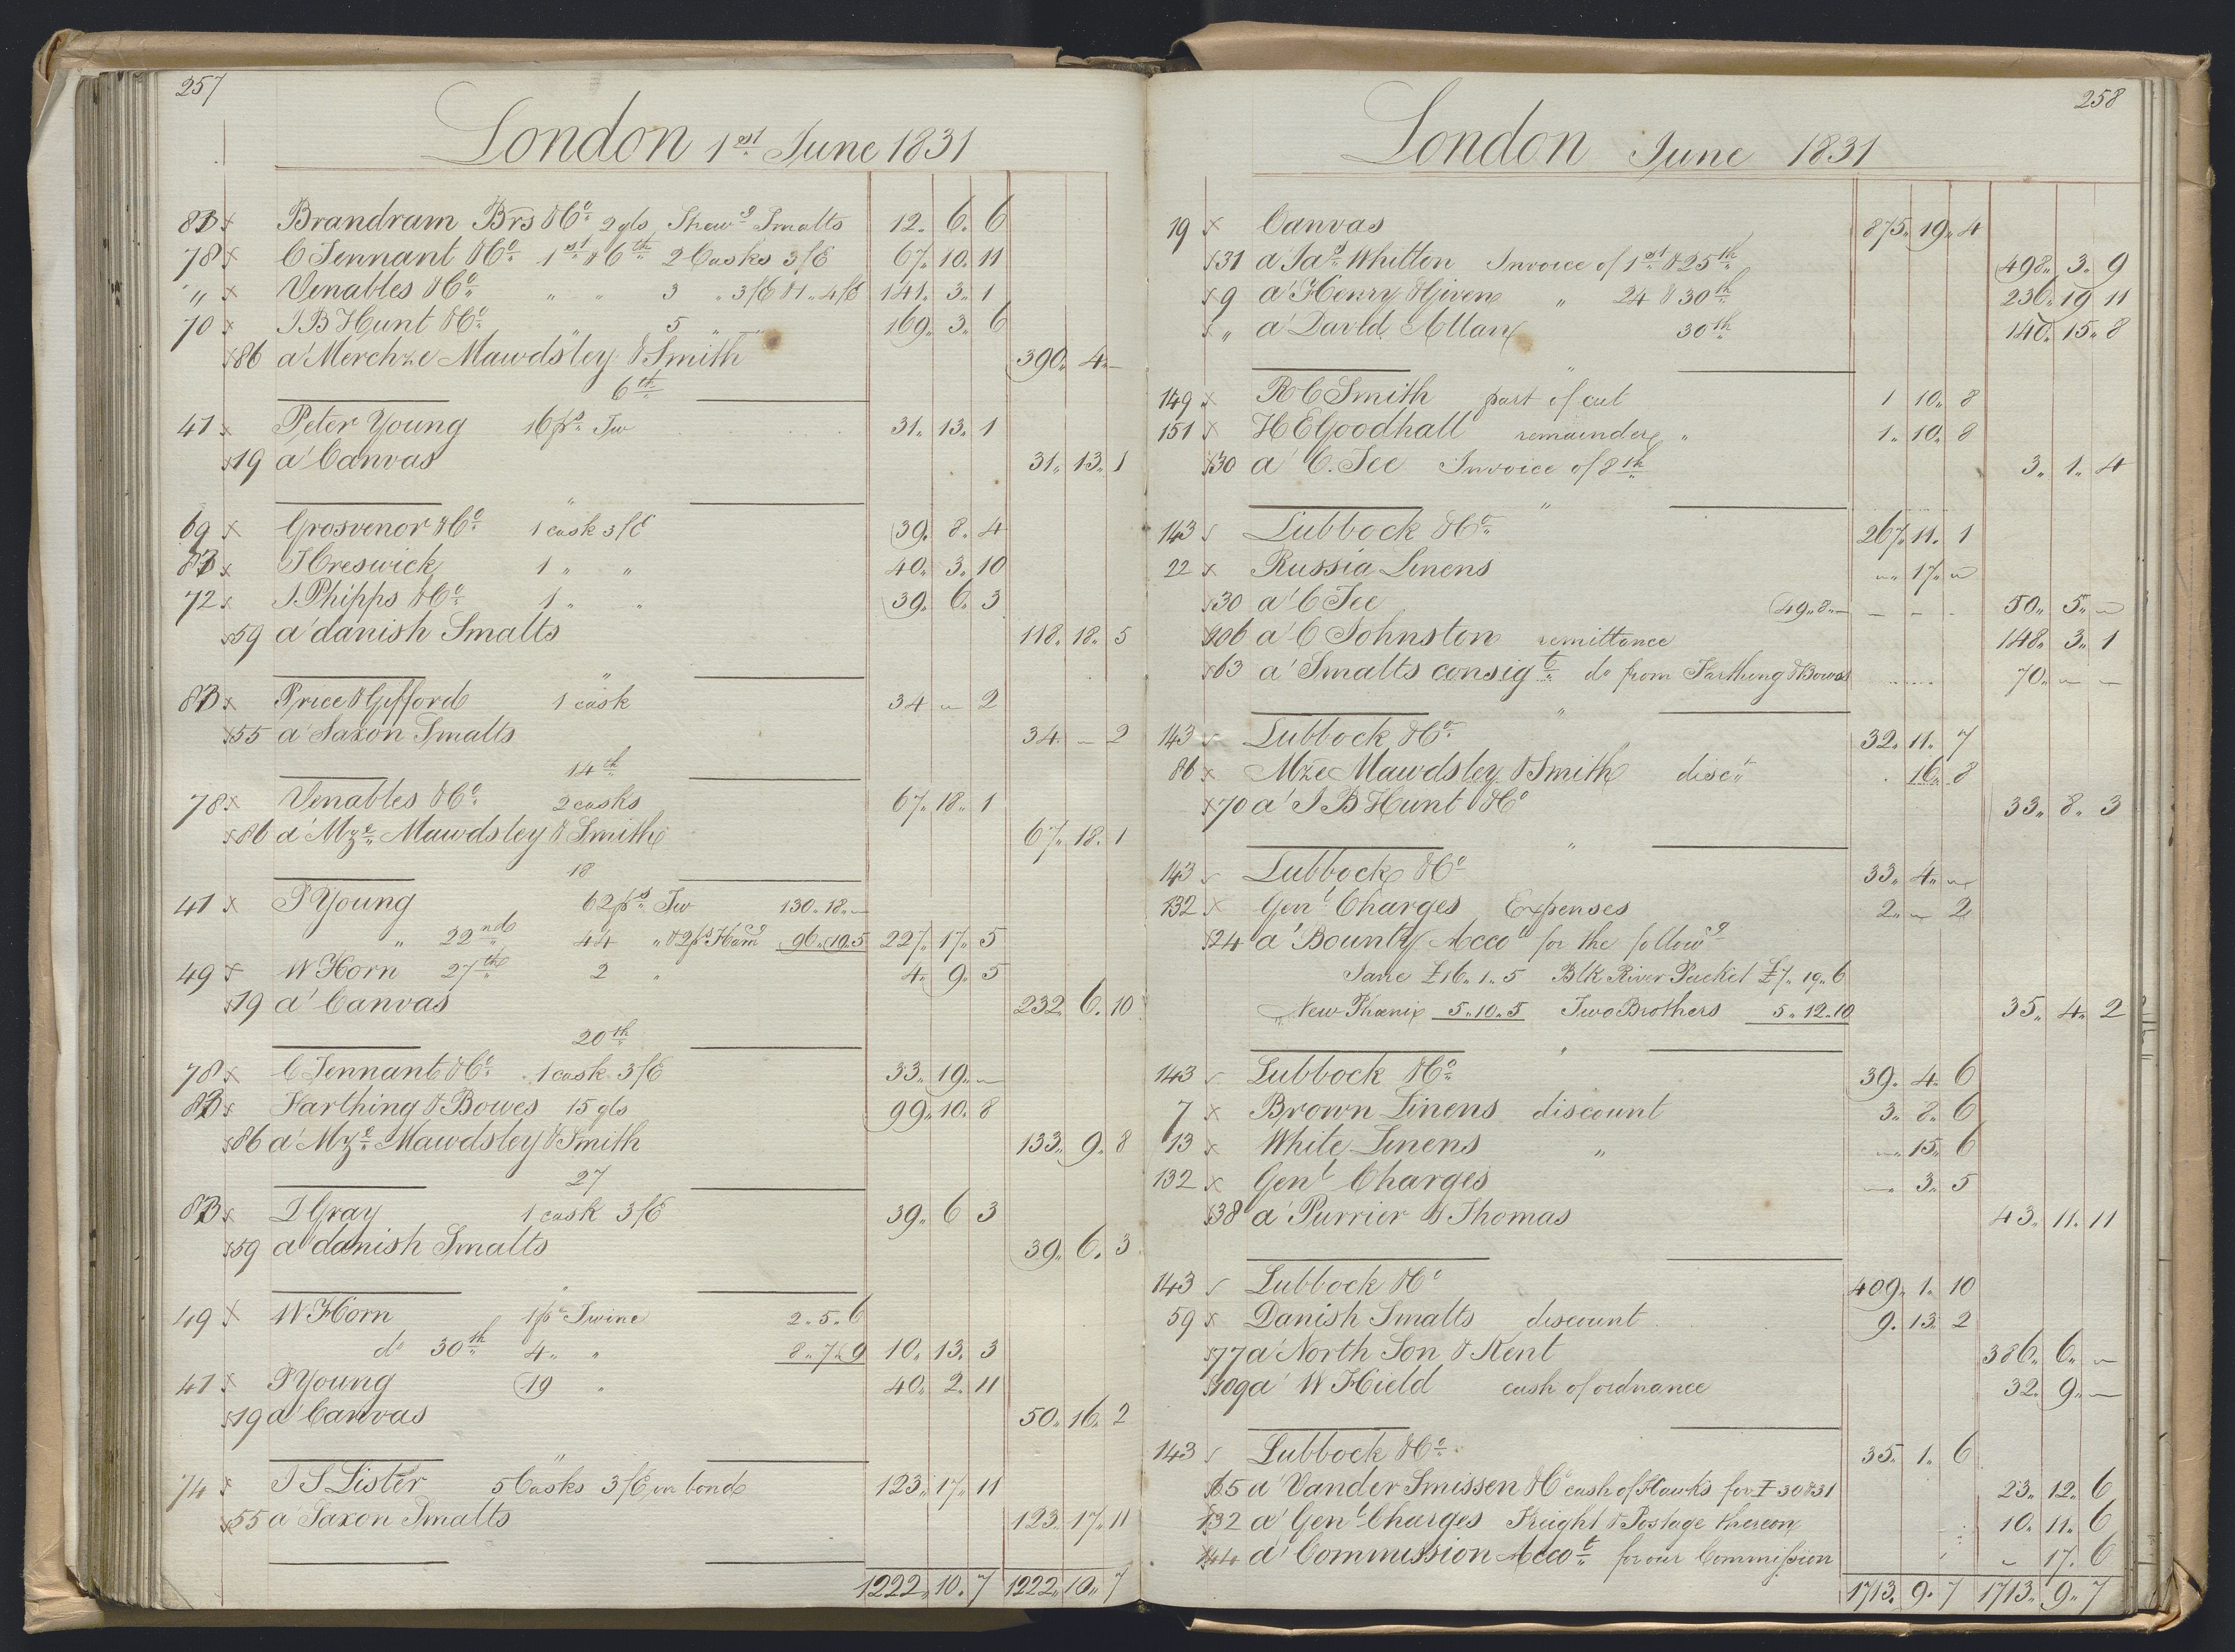 257
London 1st June 1831
83 x Brandram Brs & Co 2 gls Smalts 12. 6. 6
78 x C Tennant & Co 1st & 6th 2 Casks 3/E 67. 10. 11
" x Venables & Co " " 3 " 3/E & 1 " 4/E 141. 3. 1
70 x J B Hunt & Co " 5 " " 169. 3. 6
x 86 a' Merchze Mawdsley & Smith 390. 4. —
6th
41 x Peter Young 16 ps Tw 31. 13. 1
x 19 a' Canvas 31. 13. 1
"
69 x Grosvenor & Co 1 cask 3/E 39. 8. 4
83 x J Creswick 1 " " 40. 3. 10
72 x J Phipps & Co 1 " " 39. 6. 3
x 59 a' danish Smalts 118. 18. 5
"
83 x Price & Gifford 1 cask 34 — 2
x 55 a' Saxon Smalts 34. — 2
14th
78 x Venables & Co 2 casks 67. 18. 1
x 86 a' Mze Mawdsley & Smith 67. 18. 1
18
41 x P Young 62 ps Tw 130. 18. —
" 22nd 44 " & 2 ps Hamg 96. 19. 5 227. 17. 5
49 x W Horn 27th 2 " 4. 9. 5
x 19 a' Canvas 232. 6. 10
20th
78 x C Tennant & Co 1 cask 3/E 33. 19. —
83 x Farthing & Bowes 15 gls 99. 10. 8
x 86 a' Mze Mawdsley & Smith 133. 9. 8
27
83 x J Gray 1 cask 3/E 39. 6 3
x 59 a' danish Smalts 39. 6. 3
"
49 x W Horn 1 ps Twine 2. 5. 6
do 30th 4 " " 8. 7. 9 10. 13. 3
41 x P Young 19 " 40. 2. 11
x 19 a' Canvas 50. 16. 2
"
74 x J S Lister 5 Casks 3/E in bond 123. 17. 11
x 55 a' Saxon Smalts 123. 17. 11
1222. 10. 7 1222. 10. 7
258
London June 1831
19 x Canvas 875. 19. 4
x 31 a' Jas Whitton Invoice of 1st & 25th 498. 3. 9
x 9 a' Henry & Given " 24 & 30th 236. 19 11
x " a' David Allan 30th 140. 15. 8
"
149 x R C Smith part of cut 1 10. 8
151 x H E Goodhall remainder " 1. 10. 8
x 30 a' C. Tee Invoice of 8th 3. 1. 4
"
143 Lubbock & Co 267. 11. 1
22 x Russia Linens — 17. —
x 30 a' C Tee 49. 8. — — — - 50. 5. —
x 106 a' C Johnston remittance 148. 3. 1
x 63 a' Smalts consigt do from Farthing & Bowes 70. — —
"
143 Lubbock & Co 32. 11. 7
86 x Mze Mawdsley & Smith disct 16. 8
x 70 a' J B Hunt & Co 33. 8. 3
"
143 Lubbock & Co 33. 4. —
132 x Genl Charges Expenses 2. — 2
x 24 a' Bounty Accot for the followg
Jane £16. 1. 5 Blk River Packet £7. 19. 6
New Phœnix 5. 10. 5 Two Brothers 5. 12. 10 35. 4. 2
"
143 Lubbock & Co 39. 4. 6
7 x Brown Linens discount 3. 8. 6
13 x White Linens " — 15. 6
132 x Genl Charges — 3. 5
x 38 a' Purrier & Thomas 43. 11. 11
143 Lubbock & Co 409. 1. 10
59 x Danish Smalts discount 9. 13. 2
x 77 a' North Son & Kent 386. 6. —
x 109 a' W Hield cash of ordnance 32. 9. —
143 Lubbock & Co 35. 1. 6
x 65 a' Vander Smissen & Co cash of Hawks for I 30 & 31 23. 12. 6
x 132 a' Genl Charges Freight & Postage thereon 10. 11. 6
x 144 a' Commission Accot for our Commission — 17. 6
1713. 9. 7 1713. 9. 7